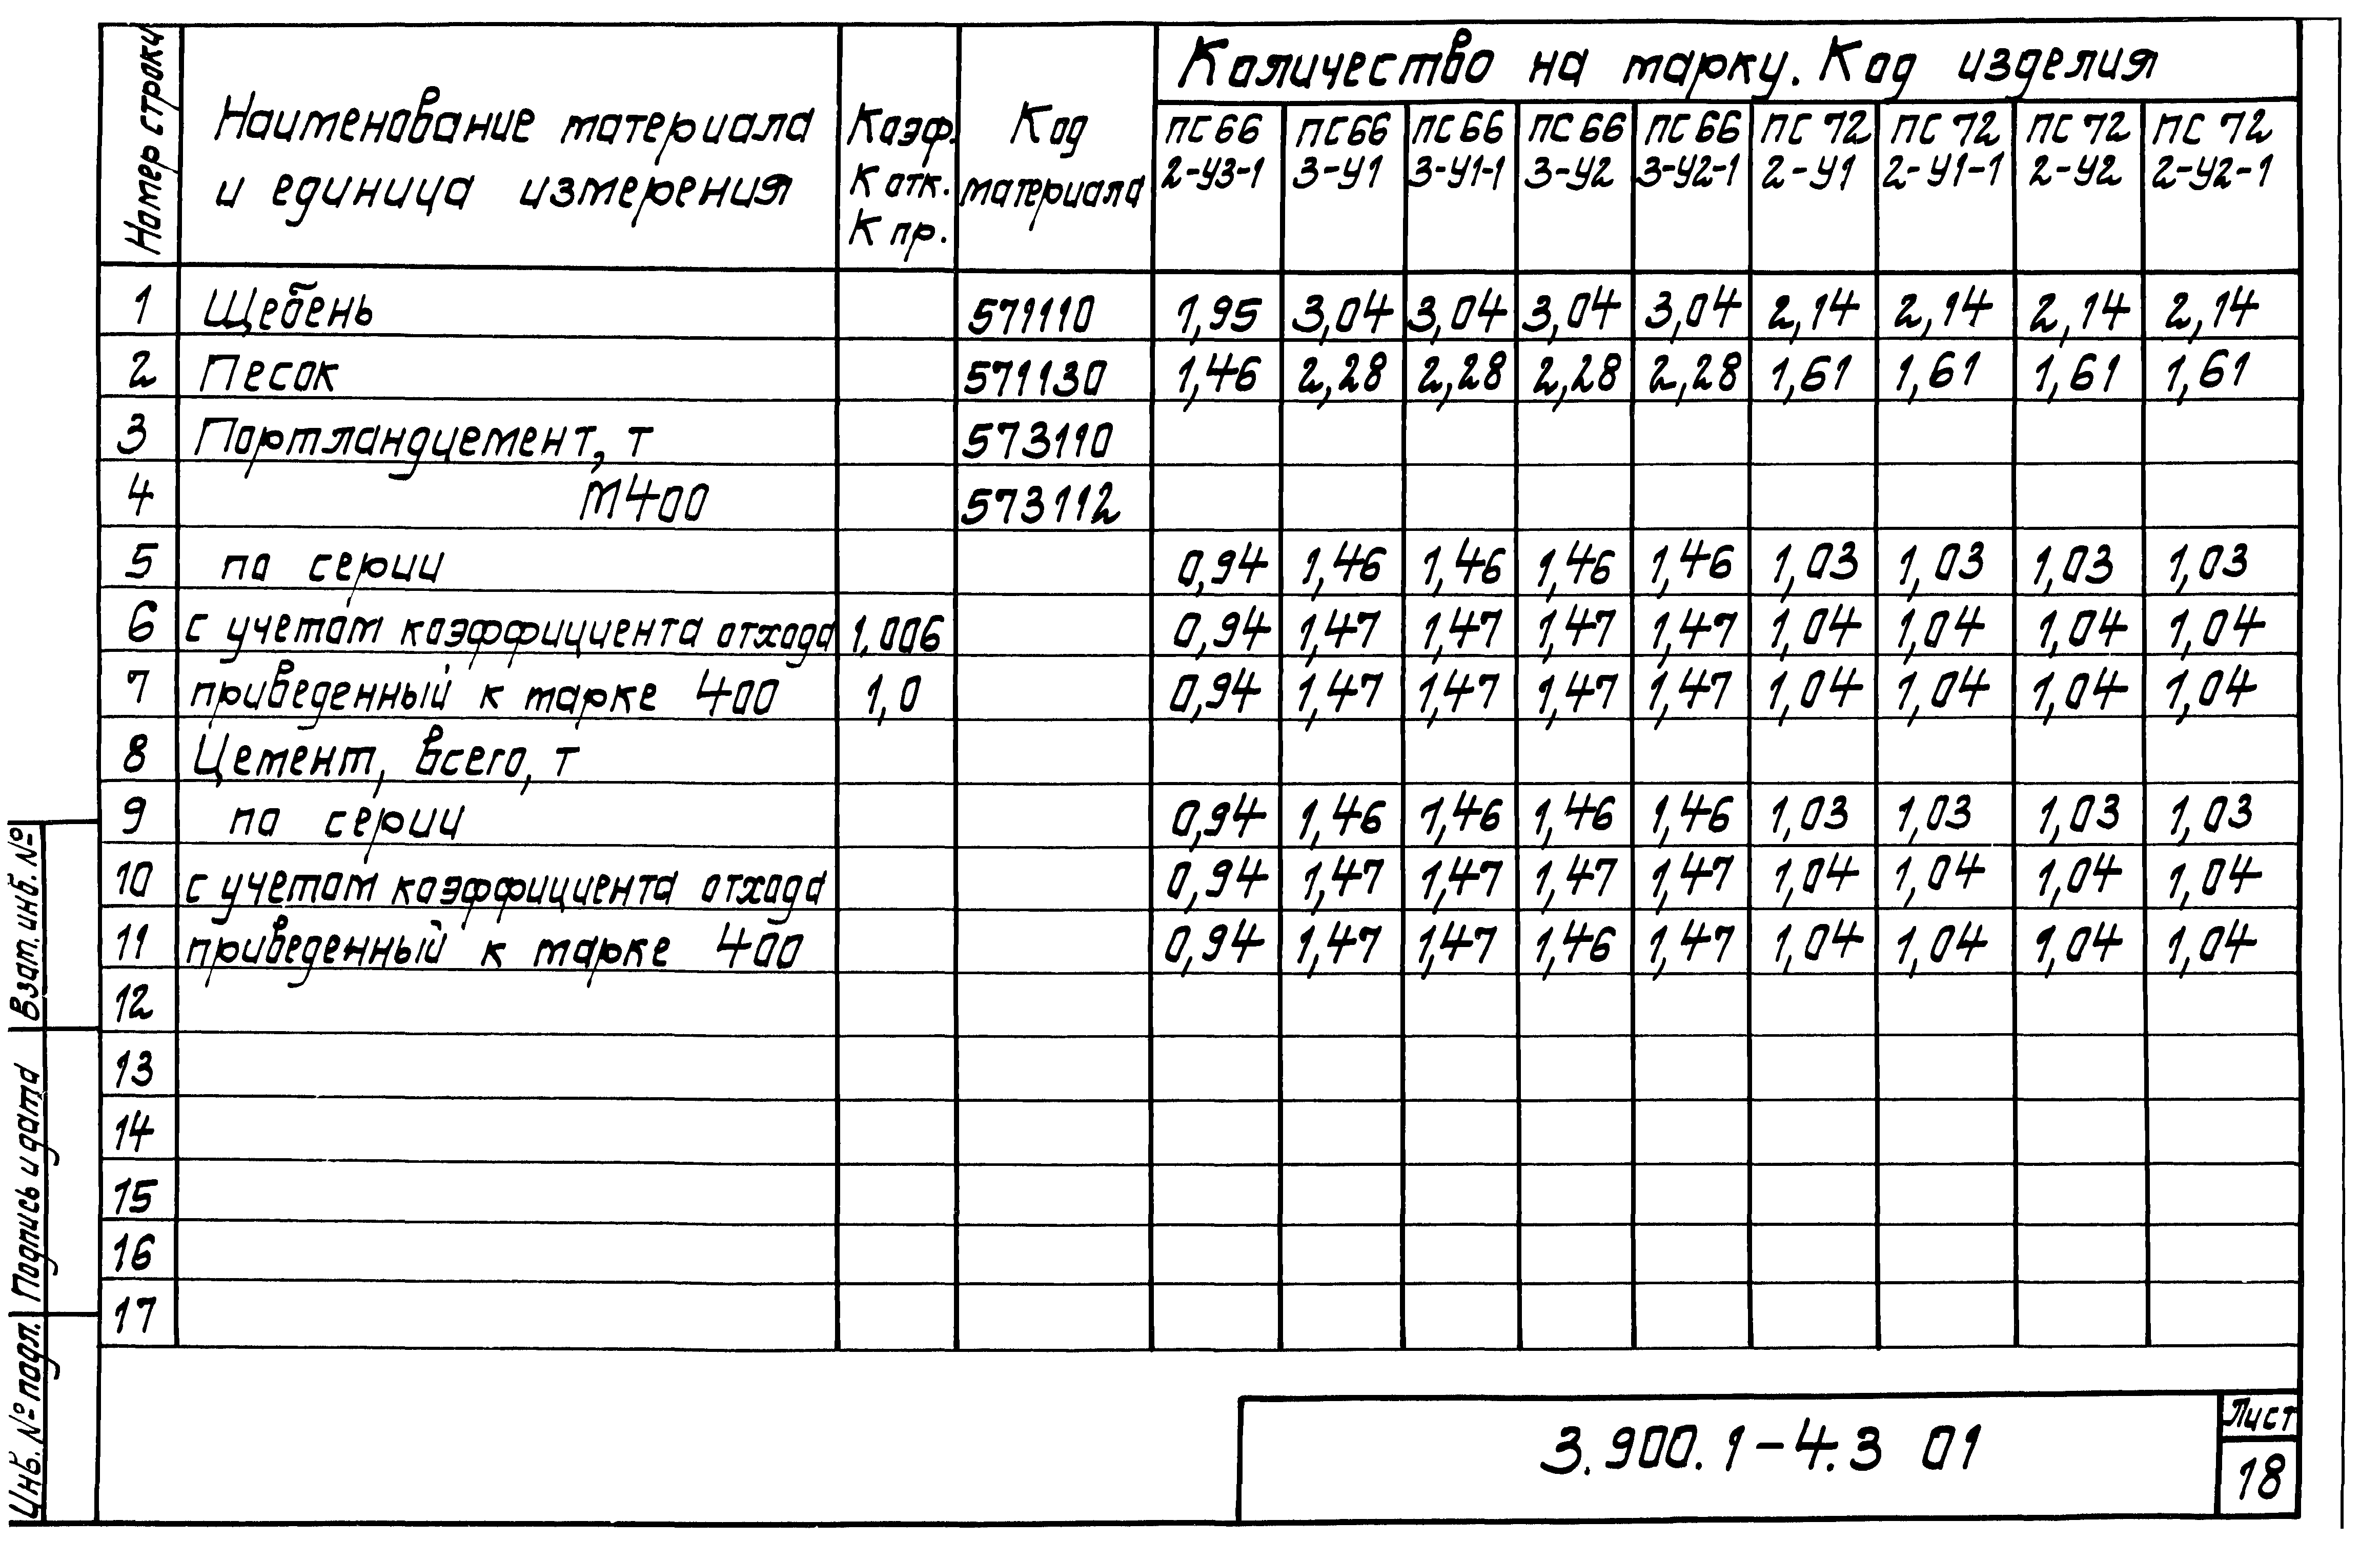 Номер строки
Наименование материала
и единица измерения
Коэф.
К отх.
К пр.
Код
материала
Количество на марку. Код изделия
ПС 66 ПС 66 ПС 66 ПС 66 ПС 66 ПС 72 ПС 72 ПС 72 ПС 72
2-У3-1 3-У1 3-У1-1 3-У2 3-У2-1 2-У1 2-У1-1 2-У2 2-У2-1
1 Щебень 571110 1,95 3,04 3,04 3,04 3,04 2,14 2,14 2,14 2,14
2 Песок 571130 1,46 2,28 2,28 2,28 2,28 1,61 1,61 1,61 1,61
3 Портландцемент, т 573110
4 М400 573112
5 по серии 0,94 1,46 1,46 1,46 1,46 1,03 1,03 1,03 1,03
6 с учетом коэффициента отхода 1,006 0,94 1,47 1,47 1,47 1,47 1,04 1,04 1,04 1,04
7 приведенный к марке 400 1,0 0,94 1,47 1,47 1,47 1,47 1,04 1,04 1,04 1,04
8 Цемент, всего, т
9 по серии 0,94 1,46 1,46 1,46 1,46 1,03 1,03 1,03 1,03
10 с учетом коэффициента отхода 0,94 1,47 1,47 1,47 1,47 1,04 1,04 1,04 1,04
11 приведенный к марке 400 0,94 1,47 1,47 1,46 1,47 1,04 1,04 1,04 1,04
12
13
14
15
16
17
Взам. инв. №
Подпись и дата
Инв. № подл.
3.900.1-4.3 01
Лист
18